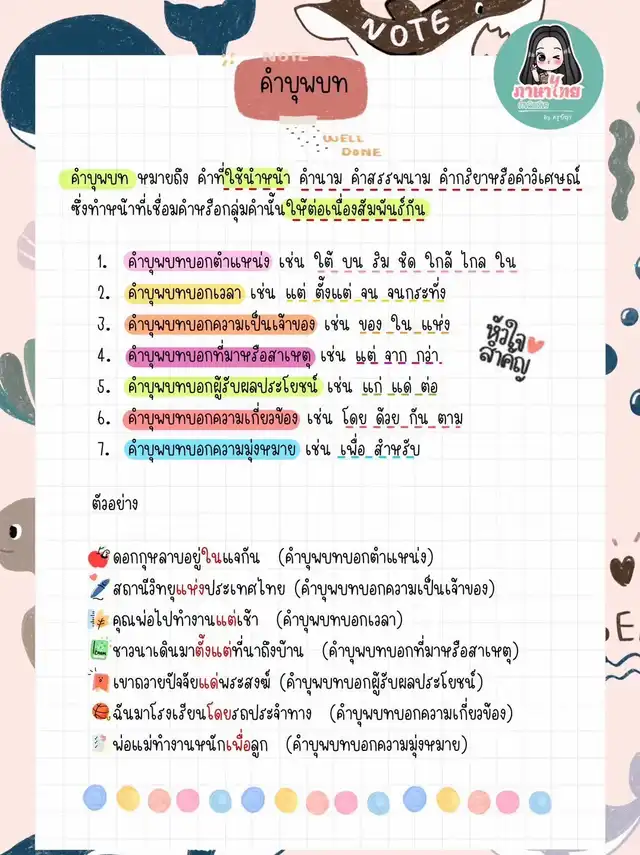 NOTE
NOTE
คำบุพบท
ภาษาไทย
WELL
DONE
คำบุพบท หมายถึง คำที่ใช้นำหน้า คำนาม คำสรรพนาม คำกริยาหรือคำวิเศษณ์
ซึ่งทำหน้าที่เชื่อมคำหรือกลุ่มคำนั้นให้ต่อเนื่องสัมพันธ์กัน
1. คำบุพบทบอกตำแหน่ง เช่น ใต้ บน ริม ชิด ใกล้ ไกล ใน
2. คำบุพบทบอกเวลา เช่น แต่ ตั้งแต่ จน จนกระทั่ง
3. คำบุพบทบอกความเป็นเจ้าของ เช่น ของ ใน แห่ง
4. คำบุพบทบอกที่มาหรือสาเหตุ เช่น แต่ จาก กว่า
5. คำบุพบทบอกผู้รับผลประโยชน์ เช่น แก่ แด่ ต่อ
6. คำบุพบทบอกความเกี่ยวข้อง เช่น โดย ด้วย กัน ตาม
7. คำบุพบทบอกความมุ่งหมาย เช่น เพื่อ สำหรับ
หัวใจ
สำคัญ
ตัวอย่าง
ดอกกุหลาบอยู่ในแจกัน (คำบุพบทบอกตำแหน่ง)
สถานีวิทยุแห่งประเทศไทย (คำบุพบทบอกความเป็นเจ้าของ)
คุณพ่อไปทำงานแต่เช้า (คำบุพบทบอกเวลา)
ชาวนาเดินมาตั้งแต่ที่นาถึงบ้าน (คำบุพบทบอกที่มาหรือสาเหตุ)
เขาถวายปัจจัยแด่พระสงฆ์ (คำบุพบทบอกผู้รับผลประโยชน์)
ฉันมาโรงเรียนโดยรถประจำทาง (คำบุพบทบอกความเกี่ยวข้อง)
พ่อแม่ทำงานหนักเพื่อลูก (คำบุพบทบอกความมุ่งหมาย)